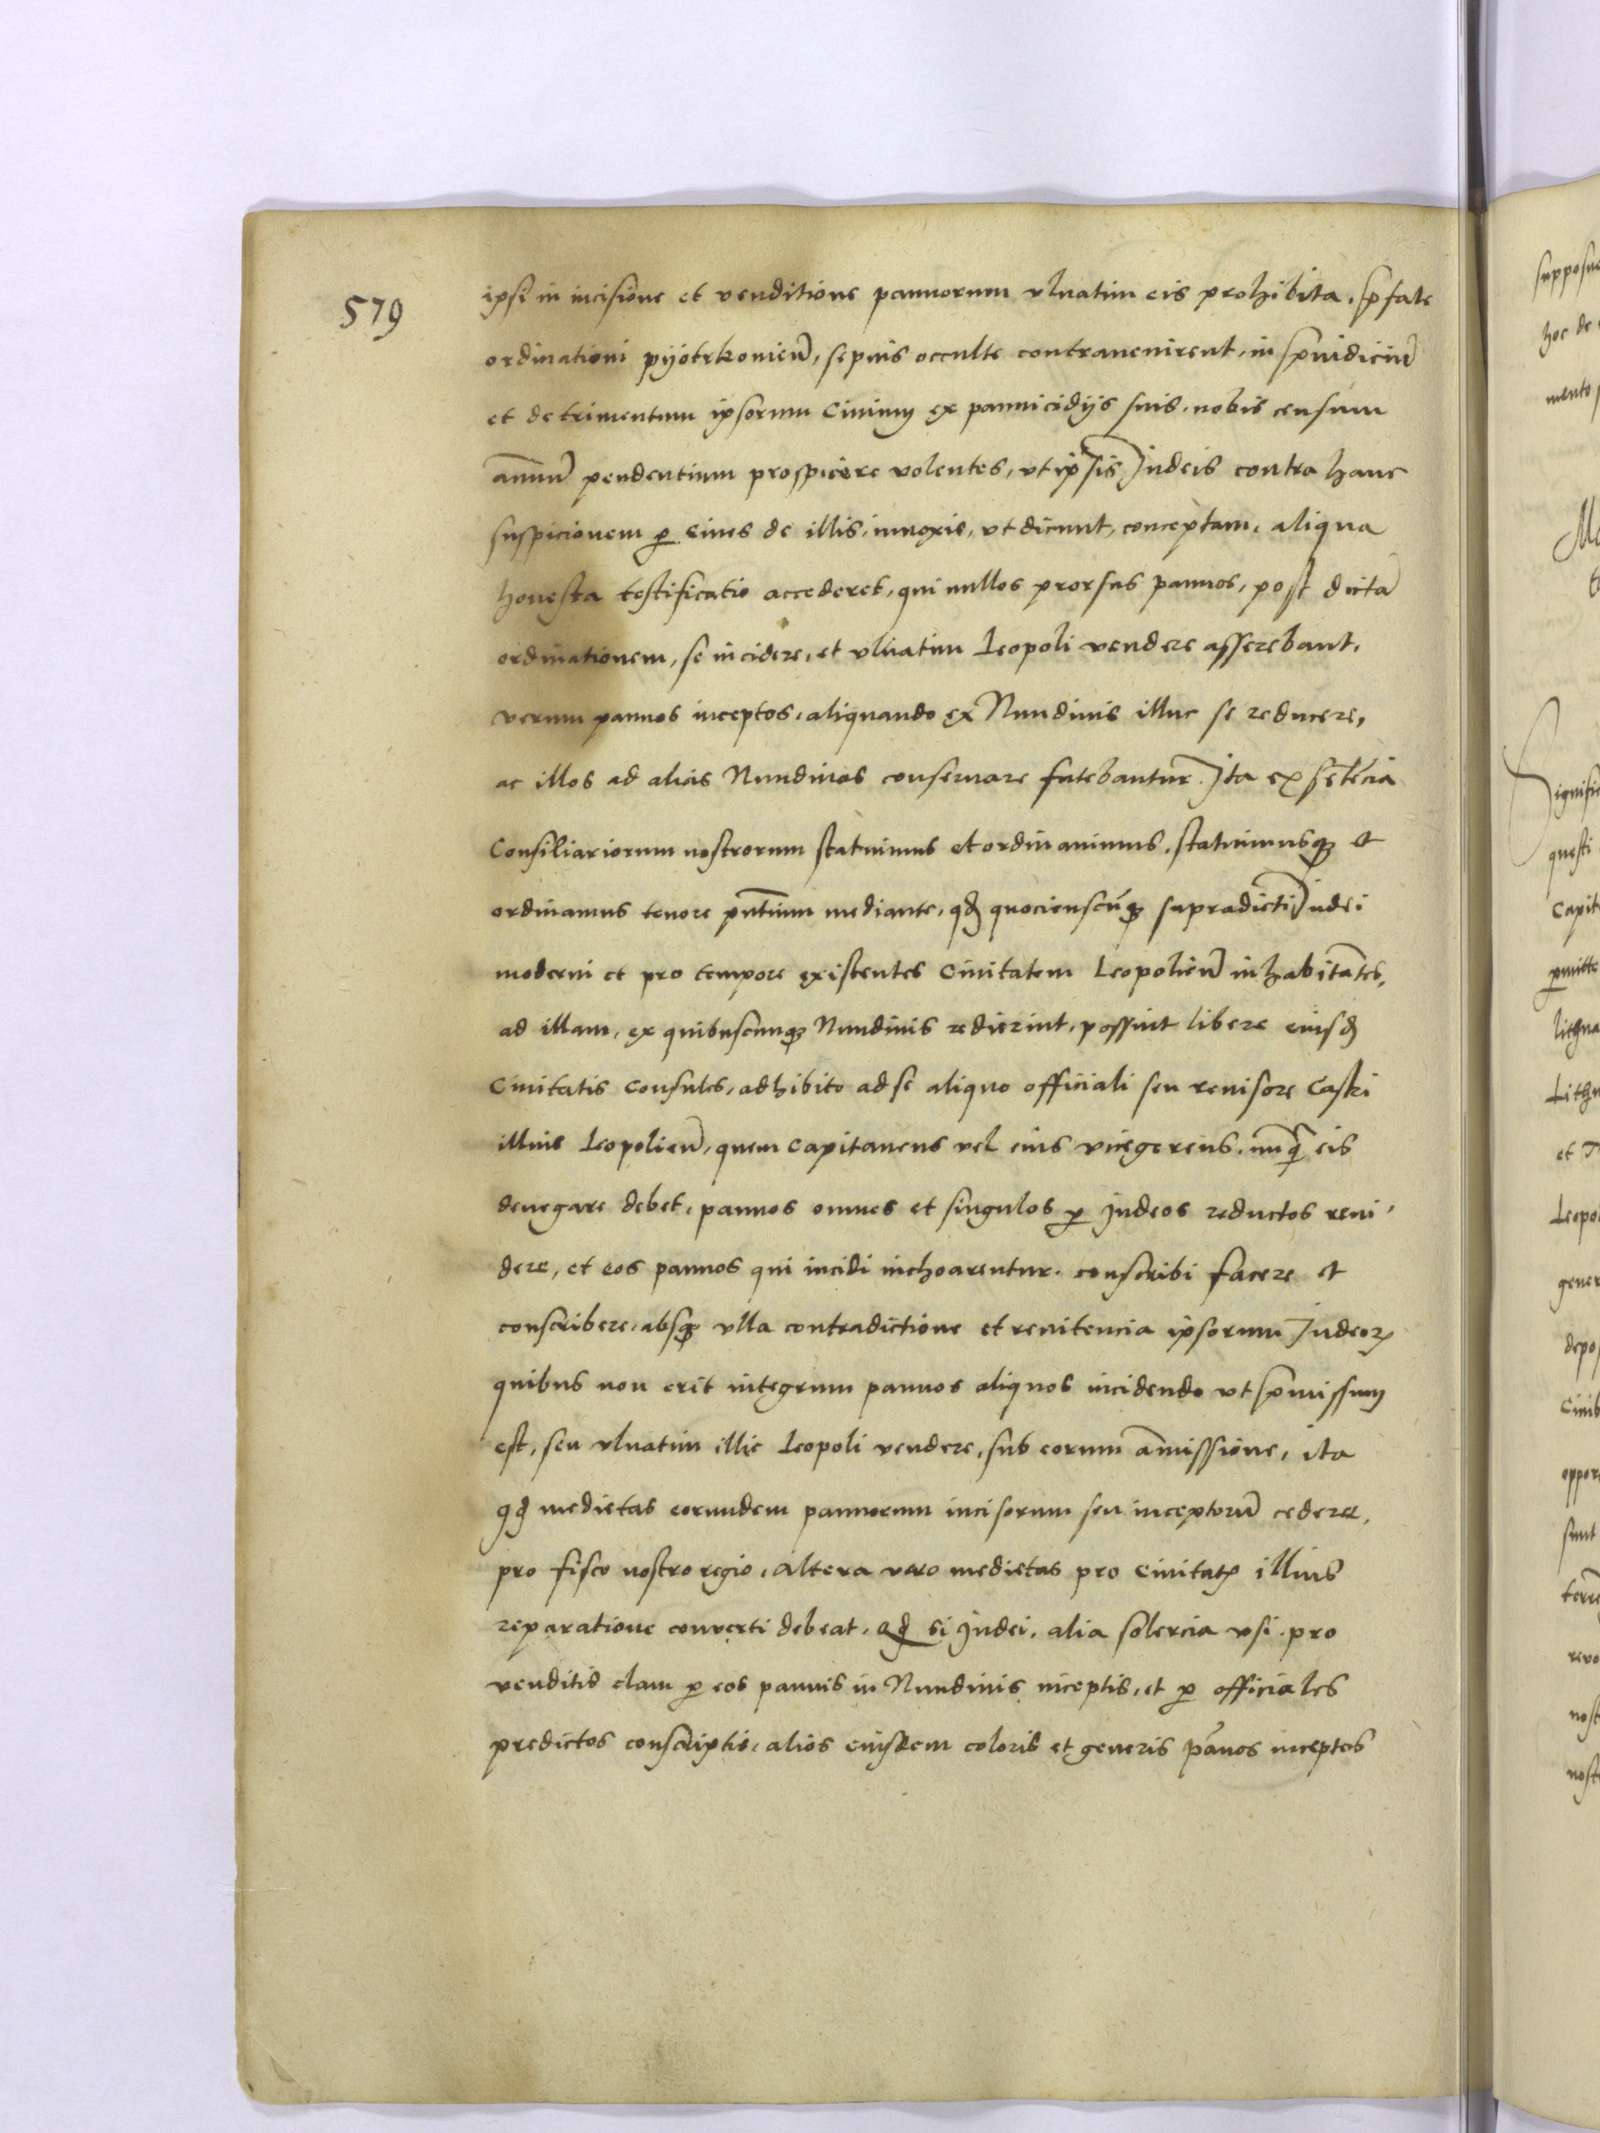 579
ipsi in incisione et venditione pannorum vlnatim eis prohibita, p̄fate
ordinationi pijotrkonien̄, sepius occulte contravenirent, in p̄iudiciū
et detrimentum ipsorum Civium ex pannicidijs suis, nobis censum
annuū pendentium prospicere volentes, vt ipsis Judeis contra hanc
suspicionem ꝑ cives de illis, innoxie, vt dicunt, conceptam, aliqua
honesta testificatio accederet, qui nullos prorsus pannos, post dictā
ordinationem, se incidere, et vlnatim Leopoli vendere asserebant,
verum pannos inceptos, aliquando ex Nundinis illuc se reducere,
ac illos ad alias Nundinas conservare fatebantur Ita ex sētēcia
Consiliariorum nostrorum statuimus et ordinavimus, statuimusqꝫ et
ordinamus tenore pn̄tium mediante, qđ quocienscūqꝫ supradicti Judei
moderni et pro tempore existentes Civitatem Leopolien̄ inhabitātes,
ad illam, ex quibuscunqꝫ Nundinis redierint, possint libere eiusđ
Civitatis Consules, adhibito ad se aliquo officiali seu revisore Castri
illius Leopolien̄, quem Capitaneus vel eius vicegerens, nunq̄ eis
denegare debet, pannos omnes et singulos ꝑ Judeos reductos revi-
dere, et eos pannos qui incidi inchoarentur, conscribi facere et
conscribere, absqꝫ vlla contradictione et renitencia ipsorum Judeoꝝ
quibus non erit integrum pannos aliquos incidendo vt p̄missum
est, seu vlnatim illic Leopoli vendere, sub eorum amissione, ita
qđ medietas eorundem pannorum incisorum seu inceptorū cederet,
pro fisco nostro regio, altera vero medietas pro Civitatꝭ illius
reparatione converti debeat, qđ si Judei, alia solercia vsi, pro
venditis clam ꝑ eos pannis in Nundinis inceptis, et ꝑ officiales
predictos conscriptis, alios eiusdem coloris et generis pānos inceptos